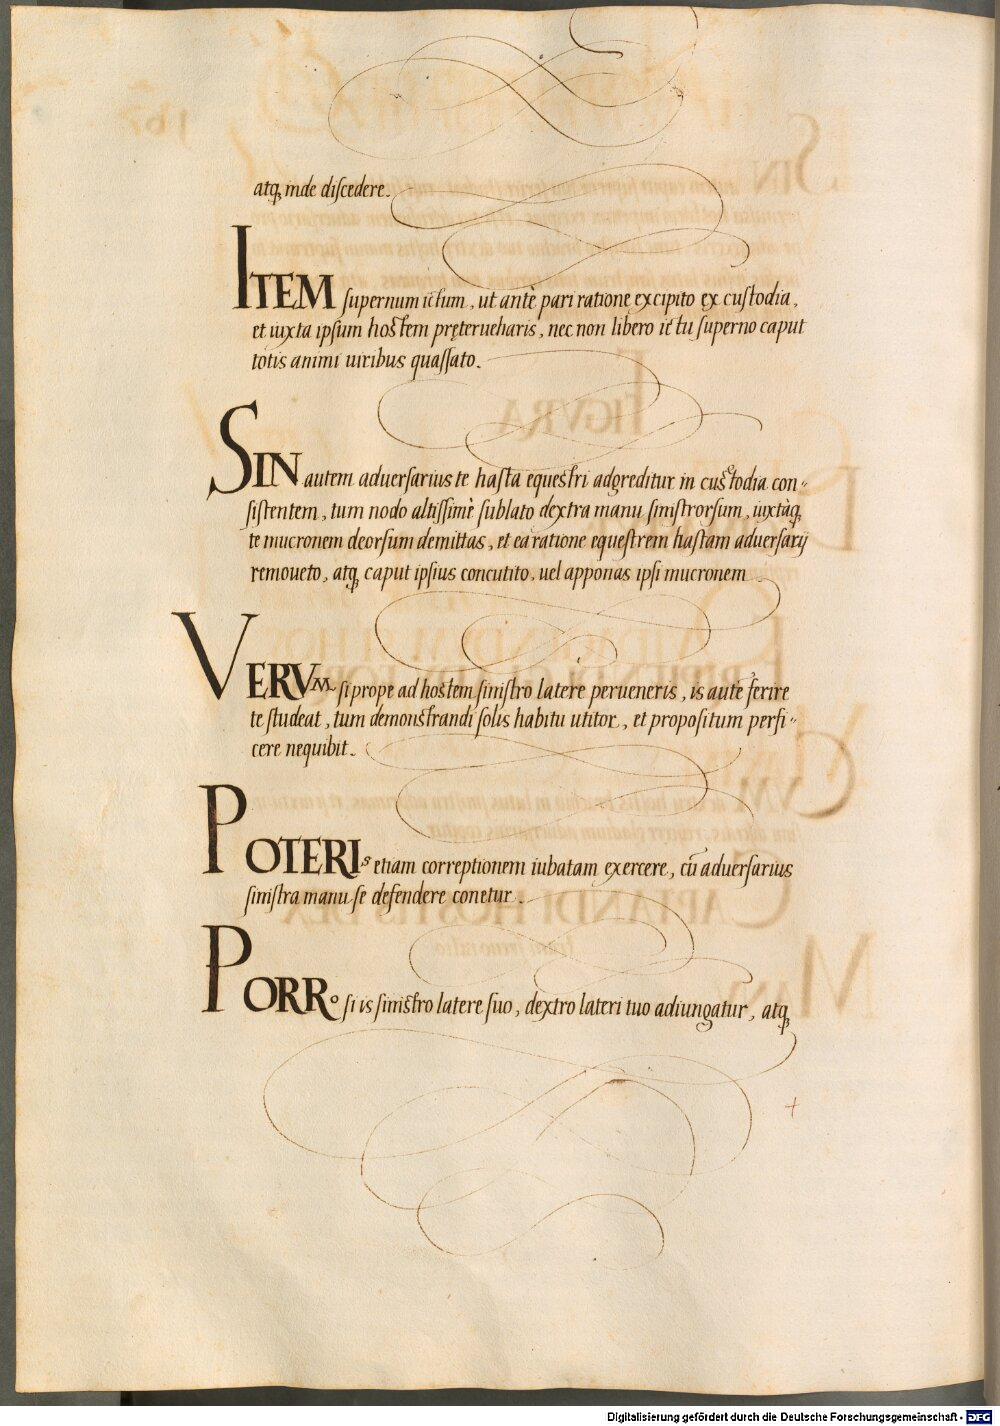 atq; inde discedere.
ITEM supernum ictum, ut antè pari ratione excipito ex custodia,
et iuxta ipsum hostem pręterueharis, nec non libero ictu superno caput
totis animi uiribus quassato.
SIN autem aduersarius te hasta equestri adgreditur in custodia con-
sistentem, tum nodo altissimè sublato dextra manu sinistrorsum, iuxtàq;
te mucronem deorsum demittas, et ea ratione equestrem hastam aduersarij
remoueto, atq; caput ipsius concutito, uel apponas ipsi mucronem
VERVM si prope ad hostem sinistro latere perueneris, is autē ferire
te studeat, tum demonstrandi solis habitu utitor, et propositum perfi-
cere nequibit.
POTERIs etiam correptionem iubatam exercere, cū aduersarius
sinistra manu se defendere conetur.
PORRo si is sinistro latere suo, dextro lateri tuo adiungatur, atq;
Digitalisierung gefördert durch die Deutsche Forschungsgemeinschaft - DFG